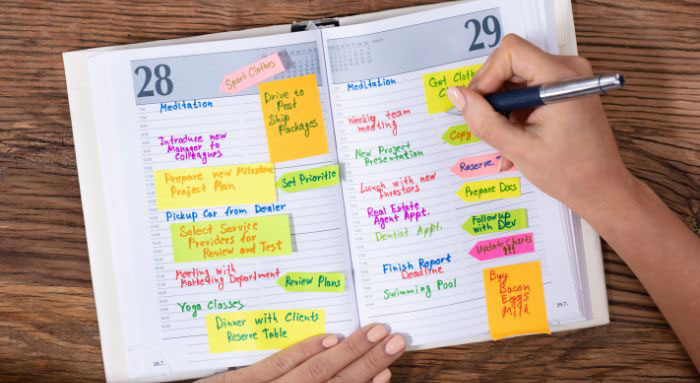 28
Sport Clothes
Meditation
Drive to
Post
Ship
Packages
Introduce new
Manager to
Prepare new Milestone
Project Plan
Set Prioritie
Pickup Car from Dealer
Select Service
Providers for
Review and Test
Meeting with
Marketing Department
Review Plans
Yoga Classes
Dinner with Clients
Reserve Table
29
August
Meditation
Get Cloth
Weekly team
meeting
Copy
New Project
Presentation
Reserve
Lunch with new
Investors
Prepare Docs
Real Estate
Agent Appt.
Followup
with Dev
Dentist Appt.
Update Charts
Finish Report
Deadline
Swimming Pool
Buy
Bacon
Eggs
Milk